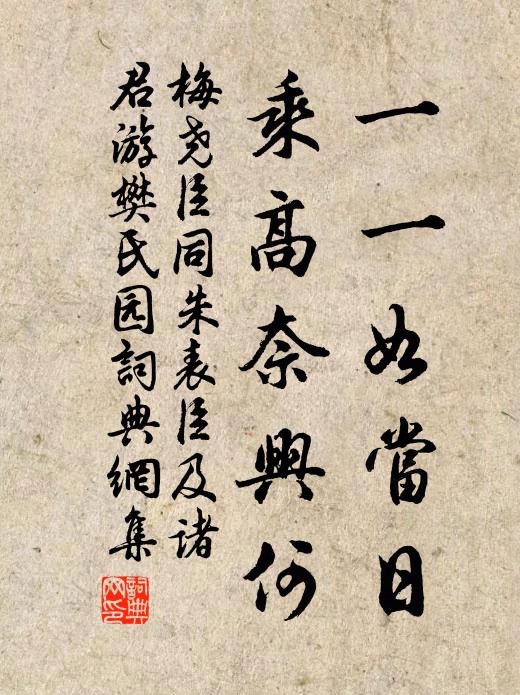 一一如當日
乘高奈興何
梅尧臣同朱表臣及诸
君游樊氏园詞典網集
詞典网印